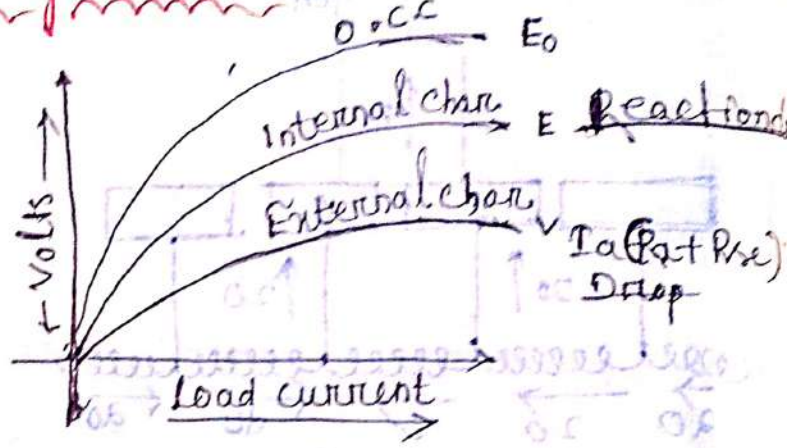 O.CC E₀
Internal char E Reaction
External char V
Ia(Ra+Rse)
Drop
← Volts →
Load current